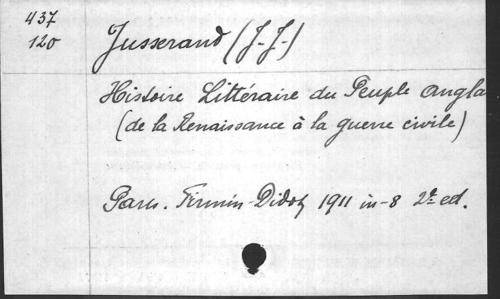 437
120
Jusserand (J.-J.)
Histoire Littéraire du Peuple Angla
(de la Renaissance à la guerre civile)
Paris. Firmin-Didot 1911 in-8 2e ed.